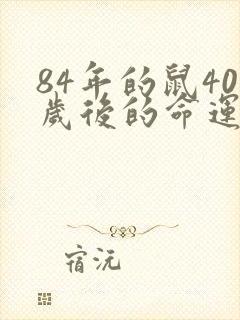 84年的鼠40
歲後的命運
宿沅